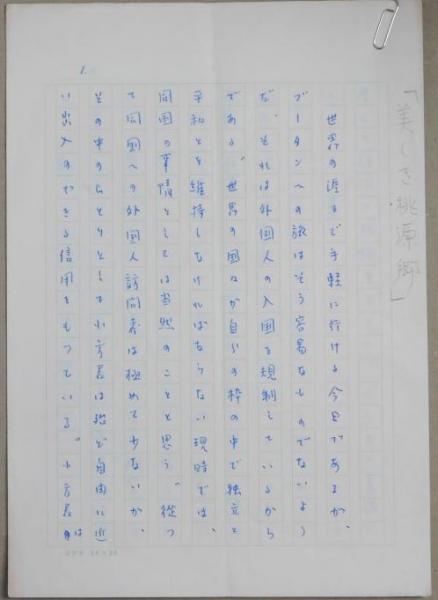 「美しき桃源郷」
1.
世界の涯まで手軽に行ける今日であるが、
ブータンへの旅はそう容易なものでないよう
だ。それは外国人の入国を規制しているから
である。世界の国々が自らの枠の中で独立と
平和とを維持しなければならない現時では、
同国の事情としては当然のことと思う。従つ
て同国への外国人訪問者は極めて少ないが、
その中のひとりとして小方君は殆ど自由に近
い出入のできる信用をもつている。小方君は